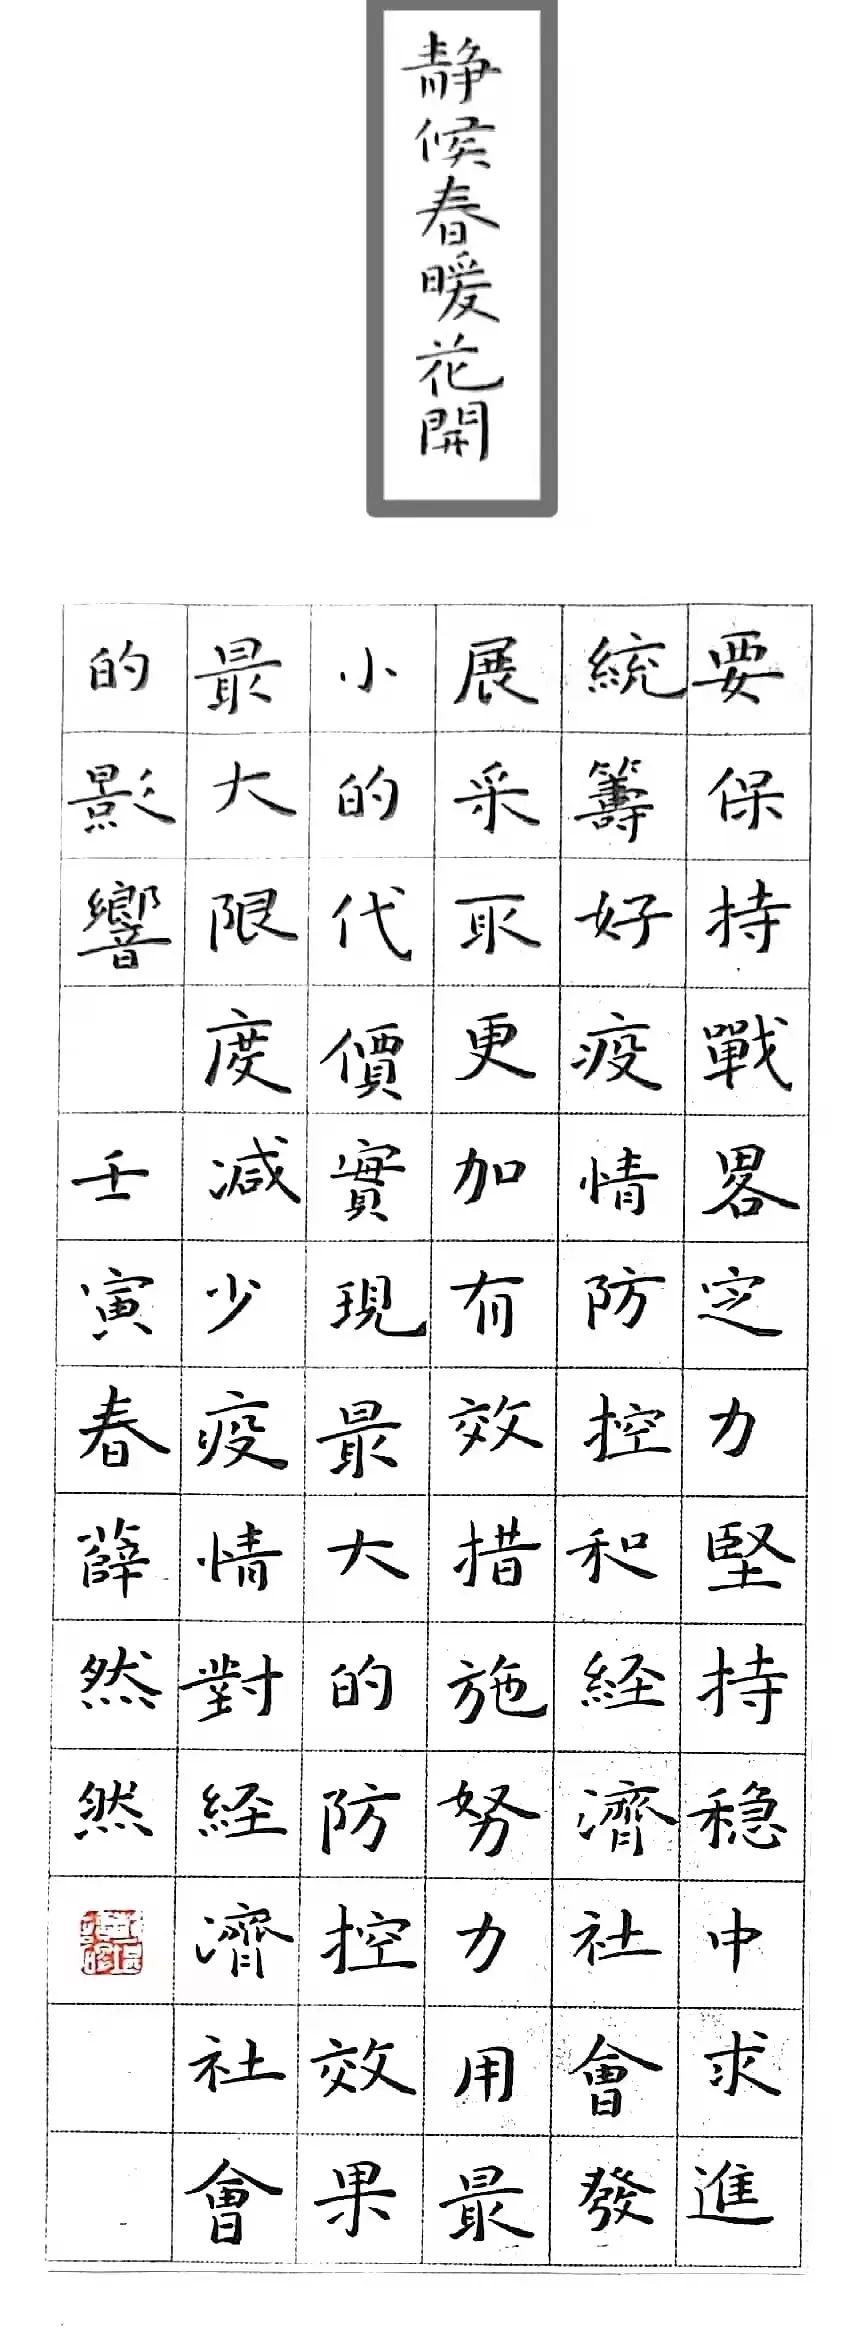 静候春暖花開
要保持戰畧定力堅持穏中求進
統籌好疫情防控和経濟社會發
展采取更加有效措施努力用最
小的代價實現最大的防控效果
最大限度减少疫情對経濟社會
的影響 壬寅春薛然然